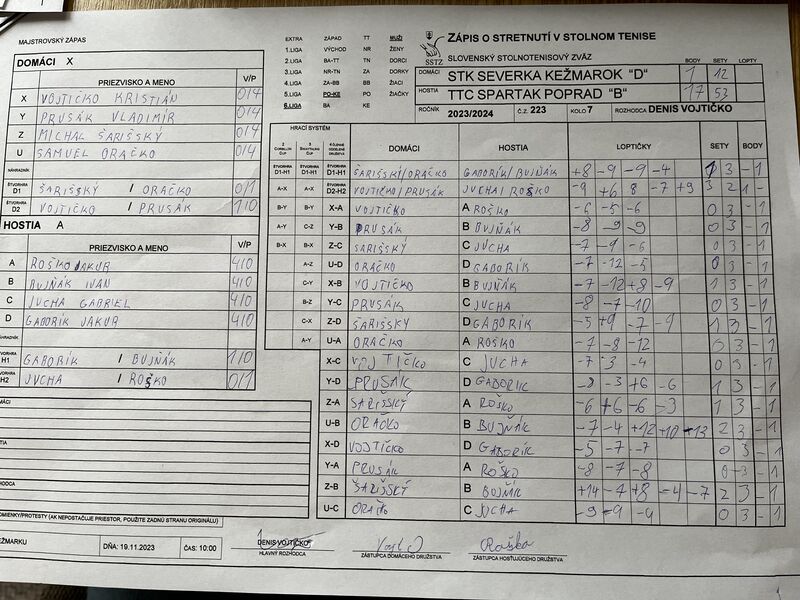 MAJSTROVSKÝ ZÁPAS
DOMÁCI X
PRIEZVISKO A MENO V/P
X VOJTIČKO KRISTIÁN 0/4
Y PRUSÁK VLADIMÍR 0/4
Z MICHAL ŠARIŠSKÝ 0/4
U SAMUEL ORAČKO 0/4
NÁHRADNÍK
ŠTVORHRA D1 ŠARIŠSKÝ / ORAČKO 0/1
ŠTVORHRA D2 VOJTIČKO / PRUSÁK 1/0
HOSTIA A
PRIEZVISKO A MENO V/P
A ROŠKO JAKUB 4/0
B BUJŇÁK IVAN 4/0
C JUCHA GABRIEL 4/0
D GABORÍK JAKUB 4/0
H1 GABORÍK / BUJŇÁK 1/0
H2 JUCHA / ROŠKO 0/1
EXTRA ZÁPAD TT MUŽI
1.LIGA VÝCHOD NR ŽENY
2.LIGA BA-TT TN DORCI
3.LIGA NR-TN ZA DORKY
4.LIGA ZA-BB BB ŽIACI
5.LIGA PO-KE PO ŽIAČKY
6.LIGA BA KE
SSTZ
ZÁPIS O STRETNUTÍ V STOLNOM TENISE
SLOVENSKÝ STOLNOTENISOVÝ ZVÄZ
BODY SETY LOPTY
DOMÁCI STK SEVERKA KEŽMAROK "D" 1 12
HOSTIA TTC SPARTAK POPRAD "B" 17 53
ROČNÍK 2023/2024 Č.Z. 223 KOLO 7 ROZHODCA DENIS VOJTIČKO
HRACÍ SYSTÉM
DOMÁCI HOSTIA LOPTIČKY SETY BODY
ŠTVORHRA D1-H1 ŠTVORHRA D1-H1 ŠTVORHRA D1-H1 ŠARIŠSKÝ/ORAČKO GABORÍK/BUJŇÁK +8 -9 -9 -4 1 3 - 1
A-X A-X ŠTVORHRA D2-H2 VOJTIČKO/PRUSÁK JUCHA/ROŠKO -9 +6 8 -7 +9 3 2 1 -
B-Y B-Y X-A VOJTIČKO A ROŠKO -6 -5 -6 0 3 - 1
A-Y C-Z Y-B PRUSÁK B BUJŇÁK -8 -9 -9 0 3 - 1
B-X B-X Z-C ŠARIŠSKÝ C JUCHA -7 -9 -6 0 3 - 1
A-Z U-D ORAČKO D GABORÍK -7 -12 -5 0 3 - 1
C-Y X-B VOJTIČKO B BUJŇÁK -7 -12 +8 -9 1 3 - 1
B-Z Y-C PRUSÁK C JUCHA -8 -7 -10 0 3 - 1
C-X Z-D ŠARIŠSKÝ D GABORÍK -5 +9 -7 -9 1 3 - 1
A-Y U-A ORAČKO A ROŠKO -7 -8 -12 0 3 - 1
X-C VOJTIČKO C JUCHA -7 -3 -4 0 3 - 1
Y-D PRUSÁK D GABORIK -8 -3 +6 -6 1 3 - 1
Z-A ŠARIŠSKÝ A ROŠKO -6 +6 -6 -3 1 3 - 1
U-B ORAČKO B BUJŇÁK -7 -4 +12 +10 -13 2 3 - 1
X-D VOJTIČKO D GABORÍK -5 -7 -7 0 3 - 1
Y-A PRUSÁK A ROŠKO -8 -7 -8 0 3 - 1
Z-B ŠARIŠSKÝ B BUJŇÁK +14 -7 +8 -4 -7 2 3 - 1
U-C C JUCHA -9 -9 -9 0 3 - 1
(AK NEPOSTAČUJE PRIESTOR, POUŽITE ZADNÚ STRANU ORIGINÁLU)
DŇA: 19.11.2023 ČAS: 10:00
DENIS VOJTIČKO
HLAVNÝ ROZHODCA
ZÁSTUPCA DOMÁCEHO DRUŽSTVA
Roško
ZÁSTUPCA HOSŤUJÚCEHO DRUŽSTVA